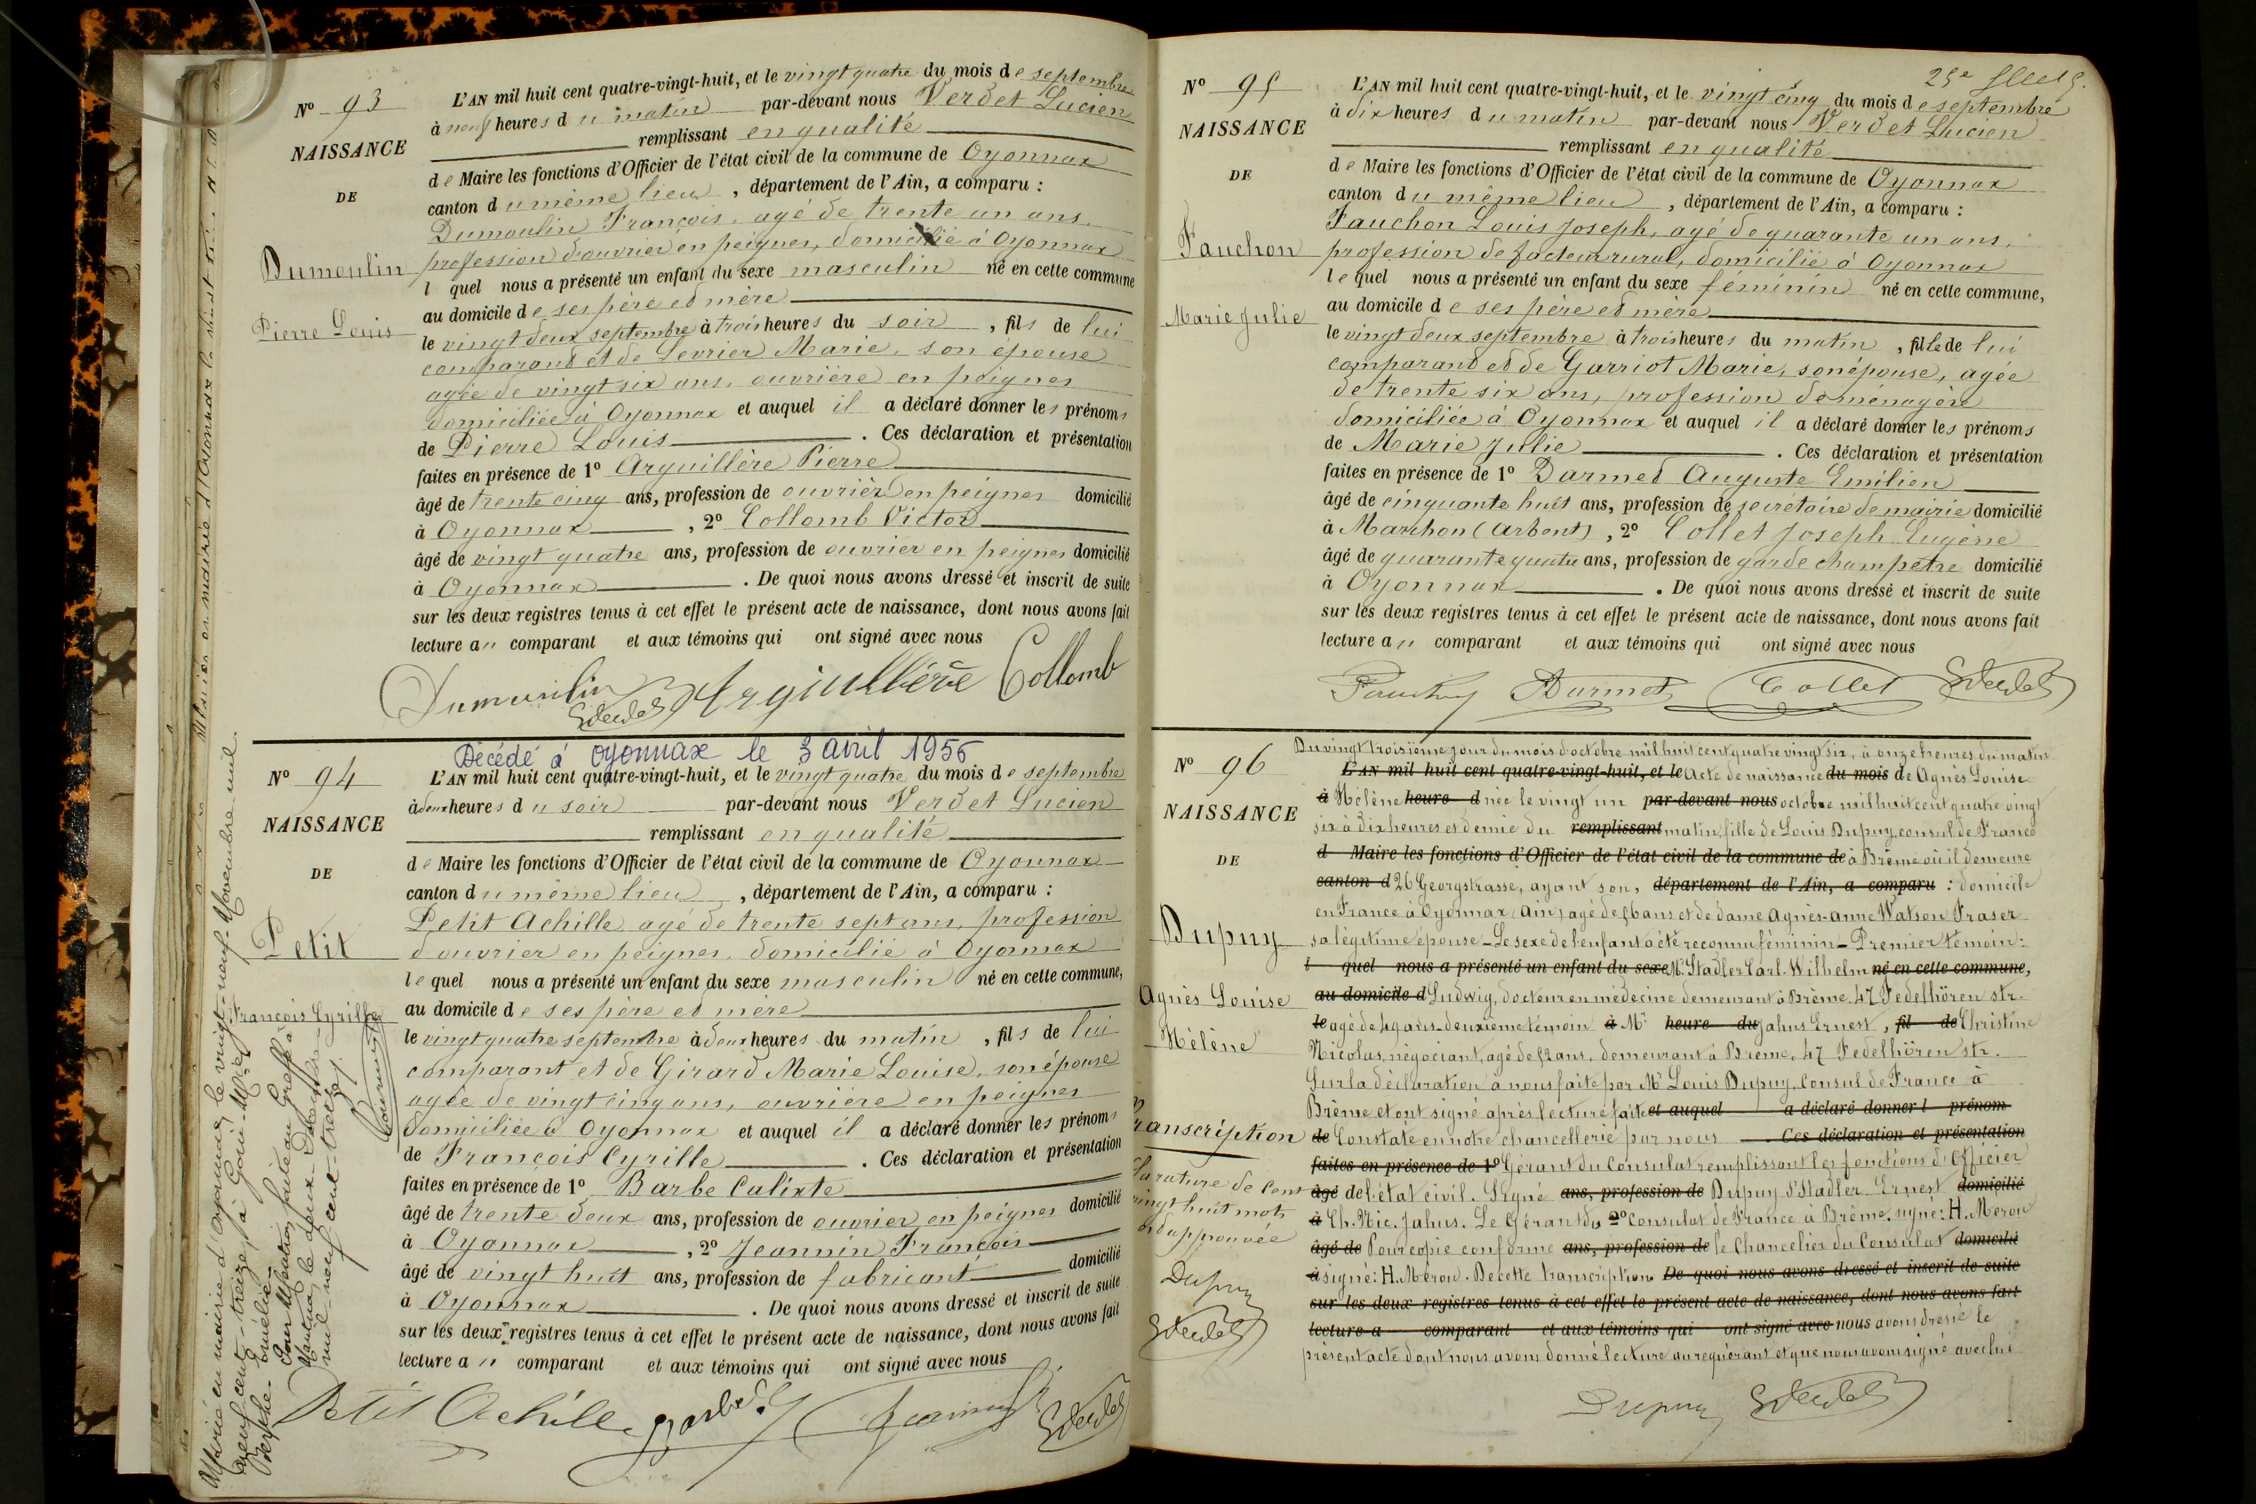 N° 93
NAISSANCE
DE
Dumoulin
Pierre Louis
L'AN mil huit cent quatre-vingt-huit, et le vingt quatre du mois de septembre
à neuf heures du matin par-devant nous Verdet Lucien
remplissant en qualité
de Maire les fonctions d'Officier de l'état civil de la commune de Oyonnax
canton du même lieu, département de l'Ain, a comparu :
Dumoulin François, agé de trente un ans,
profession d'ouvrier en peignes, domicilié à Oyonnax
l quel nous a présenté un enfant du sexe masculin né en cette commune
au domicile de ses père et mère
le vingt deux septembre à trois heures du soir, fils de lui
comparant et de Levrier Marie, son épouse
agée de vingt six ans, ouvrière en peignes
domiciliée à Oyonnax et auquel il a déclaré donner les prénoms
de Pierre Louis. Ces déclaration et présentation
faites en présence de 1° Arguillère Pierre
âgé de trente cinq ans, profession de ouvrier en peignes domicilié
à Oyonnax, 2° Collomb Victor
âgé de vingt quatre ans, profession de ouvrier en peignes domicilié
à Oyonnax. De quoi nous avons dressé et inscrit de suite
sur les deux registres tenus à cet effet le présent acte de naissance, dont nous avons fait
lecture au comparant et aux témoins qui ont signé avec nous
Dumoulin Arguillère Collomb
Verdet
Décédé à Oyonnax le 3 avril 1956
N° 94
NAISSANCE
DE
Petit
François Cyrille
L'AN mil huit cent quatre-vingt-huit, et le vingt quatre du mois de septembre
à deux heures du soir par-devant nous Verdet Lucien
remplissant en qualité
de Maire les fonctions d'Officier de l'état civil de la commune de Oyonnax
canton du même lieu, département de l'Ain, a comparu :
Petit Achille agé de trente sept ans, profession
d'ouvrier en peignes, domicilié à Oyonnax
lequel nous a présenté un enfant du sexe masculin né en cette commune,
au domicile de ses père et mère
le vingt quatre septembre à deux heures du matin, fils de lui
comparant et de Girard Marie Louise, son épouse
agée de vingt cinq ans, ouvrière en peignes
domiciliée à Oyonnax et auquel il a déclaré donner les prénoms
de François Cyrille. Ces déclaration et présentation
faites en présence de 1° Barbe Calixte
âgé de trente deux ans, profession de ouvrier en peignes domicilié
à Oyonnax, 2° Jeannin François
âgé de vingt huit ans, profession de fabricant domicilié
à Oyonnax. De quoi nous avons dressé et inscrit de suite
sur les deux registres tenus à cet effet le présent acte de naissance, dont nous avons fait
lecture au comparant et aux témoins qui ont signé avec nous
Petit Achille Barbe C. Jeannin F. Verdet
Marié en mairie d'Oyonnax le vingt-neuf Novembre mil
neuf cent-treize, à Marie
Emélie
Pour Mention faite au Greffe à
Nantua le deux Décembre
mil neuf cent treize
25e feuillet
N° 95
NAISSANCE
DE
Fauchon
Marie Julie
L'AN mil huit cent quatre-vingt-huit, et le vingt cinq du mois de septembre
à dix heures du matin par-devant nous Verdet Lucien
remplissant en qualité
de Maire les fonctions d'Officier de l'état civil de la commune de Oyonnax
canton du même lieu, département de l'Ain, a comparu :
Fauchon Louis Joseph, agé de quarante un ans,
profession de facteur rural, domicilié à Oyonnax
lequel nous a présenté un enfant du sexe féminin né en cette commune,
au domicile de ses père et mère
le vingt deux septembre à trois heures du matin, fille de lui
comparant et de Garriot Marie, son épouse, agée
de trente six ans, profession de ménagère
domiciliée à Oyonnax et auquel il a déclaré donner les prénoms
de Marie Julie. Ces déclaration et présentation
faites en présence de 1° Darmet Auguste Emilien
âgé de cinquante huit ans, profession de secrétaire de mairie domicilié
à Marchon (Arbent), 2° Collet Joseph Eugène
âgé de quarante quatre ans, profession de garde champêtre domicilié
à Oyonnax. De quoi nous avons dressé et inscrit de suite
sur les deux registres tenus à cet effet le présent acte de naissance, dont nous avons fait
lecture au comparant et aux témoins qui ont signé avec nous
Fauchon Darmet Collet Verdet
N° 96
NAISSANCE
DE
Dupuy
Agnès Louise
Hélène
Transcription
rature de cent
vingt huit mots
approuvée
Dupuy
Verdet
Du vingt troisième jour du mois d'octobre mil huit cent quatre vingt six, à onze heures du matin
L'AN mil huit cent quatre-vingt-huit, et le Acte de naissance du mois de Agnès Louise
à Hélène heure d née le vingt un par-devant nous octobre mil huit cent quatre vingt
six à dix heures et demie du remplissant matin, fille de Louis Dupuy, consul de France
d Maire les fonctions d'Officier de l'état civil de la commune de à Brême où il demeure
canton d 26 Georgstrasse, ayant son, département de l'Ain, a comparu : domicile
en France à Oyonnax (Ain) agé de 46 ans et de dame Agnès-Anne Watson Fraser
sa légitime épouse - Le sexe de l'enfant a été reconnu féminin - Premier témoin:
l quel nous a présenté un enfant du sexe Mr. Stadler Carl. Wilhelm né en cette commune,
au domicile d Ludwig, docteur en médecine demeurant à Brême, 47 Fedelhören str.
le agé de 49 ans - deuxième témoin à Mr. heure du Jahns Ernest, fil de Christine
Nicolas, négociant, agé de 52 ans, demeurant à Brême, 47 Fedelhören str.
Sur la déclaration à nous faite par Mr Louis Dupuy, Consul de France à
Brême et ont signé après lecture faite et auquel a déclaré donner l prénom
de Constaté en notre chancellerie par nous . Ces déclaration et présentation
faites en présence de 1° Gérant du Consulat remplissant les fonctions d'Officier
âgé de l'état civil. Signé ans, profession de Dupuy Stadler Ernest domicilié
à Ch. Nic. Jahns. Le Gérant du 2° Consulat de France à Brême. signé: H. Meron
âgé de Pour copie conforme ans, profession de le Chancelier du Consulat domicilié
à signé: H. Méron. De cette transcription De quoi nous avons dressé et inscrit de suite
sur les deux registres tenus à cet effet le présent acte de naissance, dont nous avons fait
lecture a comparant et aux témoins qui ont signé avec nous avons dressé le
présent acte dont nous avons donné lecture au requérant et que nous avons signé avec lui
Dupuy Verdet